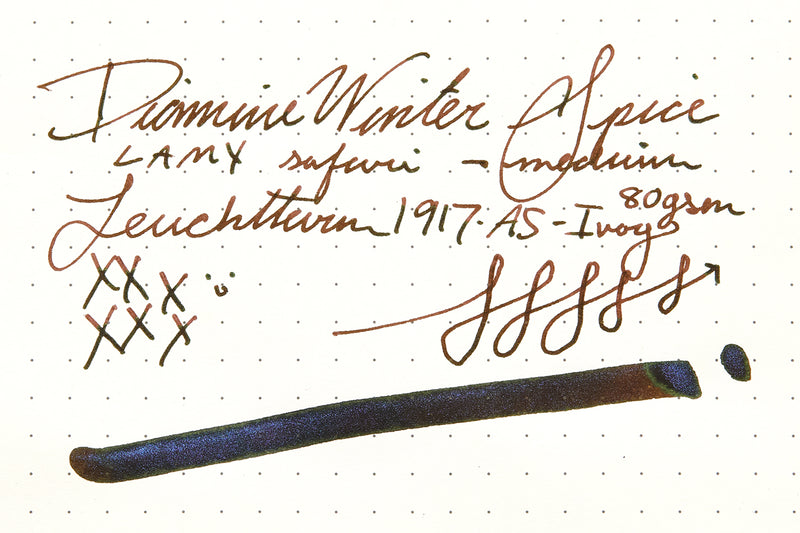 Diamine Winter Spice
LAMY safari - medium
Leuchtturm 1917 - A5 - Ivory 80gsm
XX X
XX X